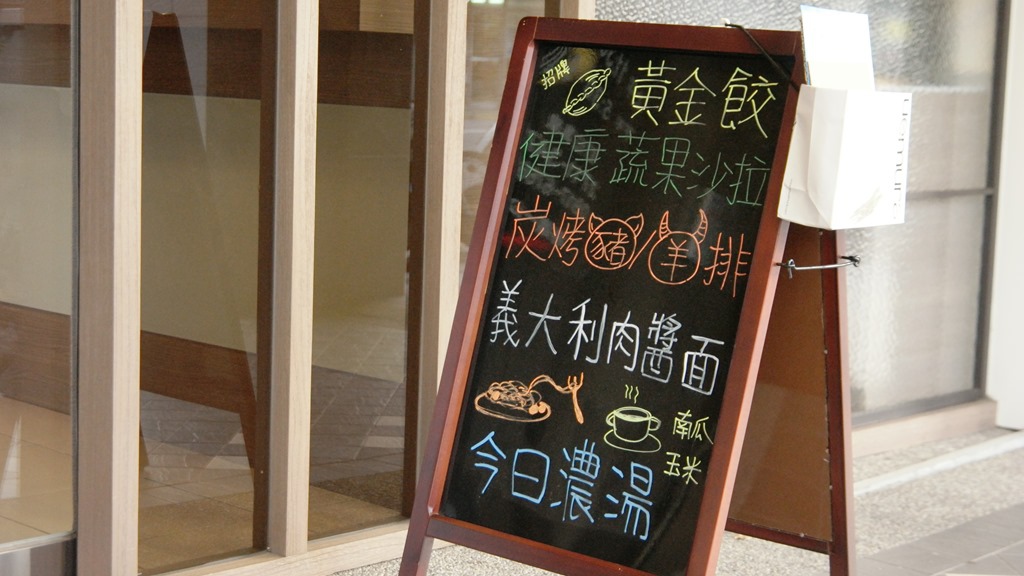 招牌 黃金餃
健康蔬果沙拉
炭烤豬/羊排
義大利肉醬面
南瓜
玉米
今日濃湯